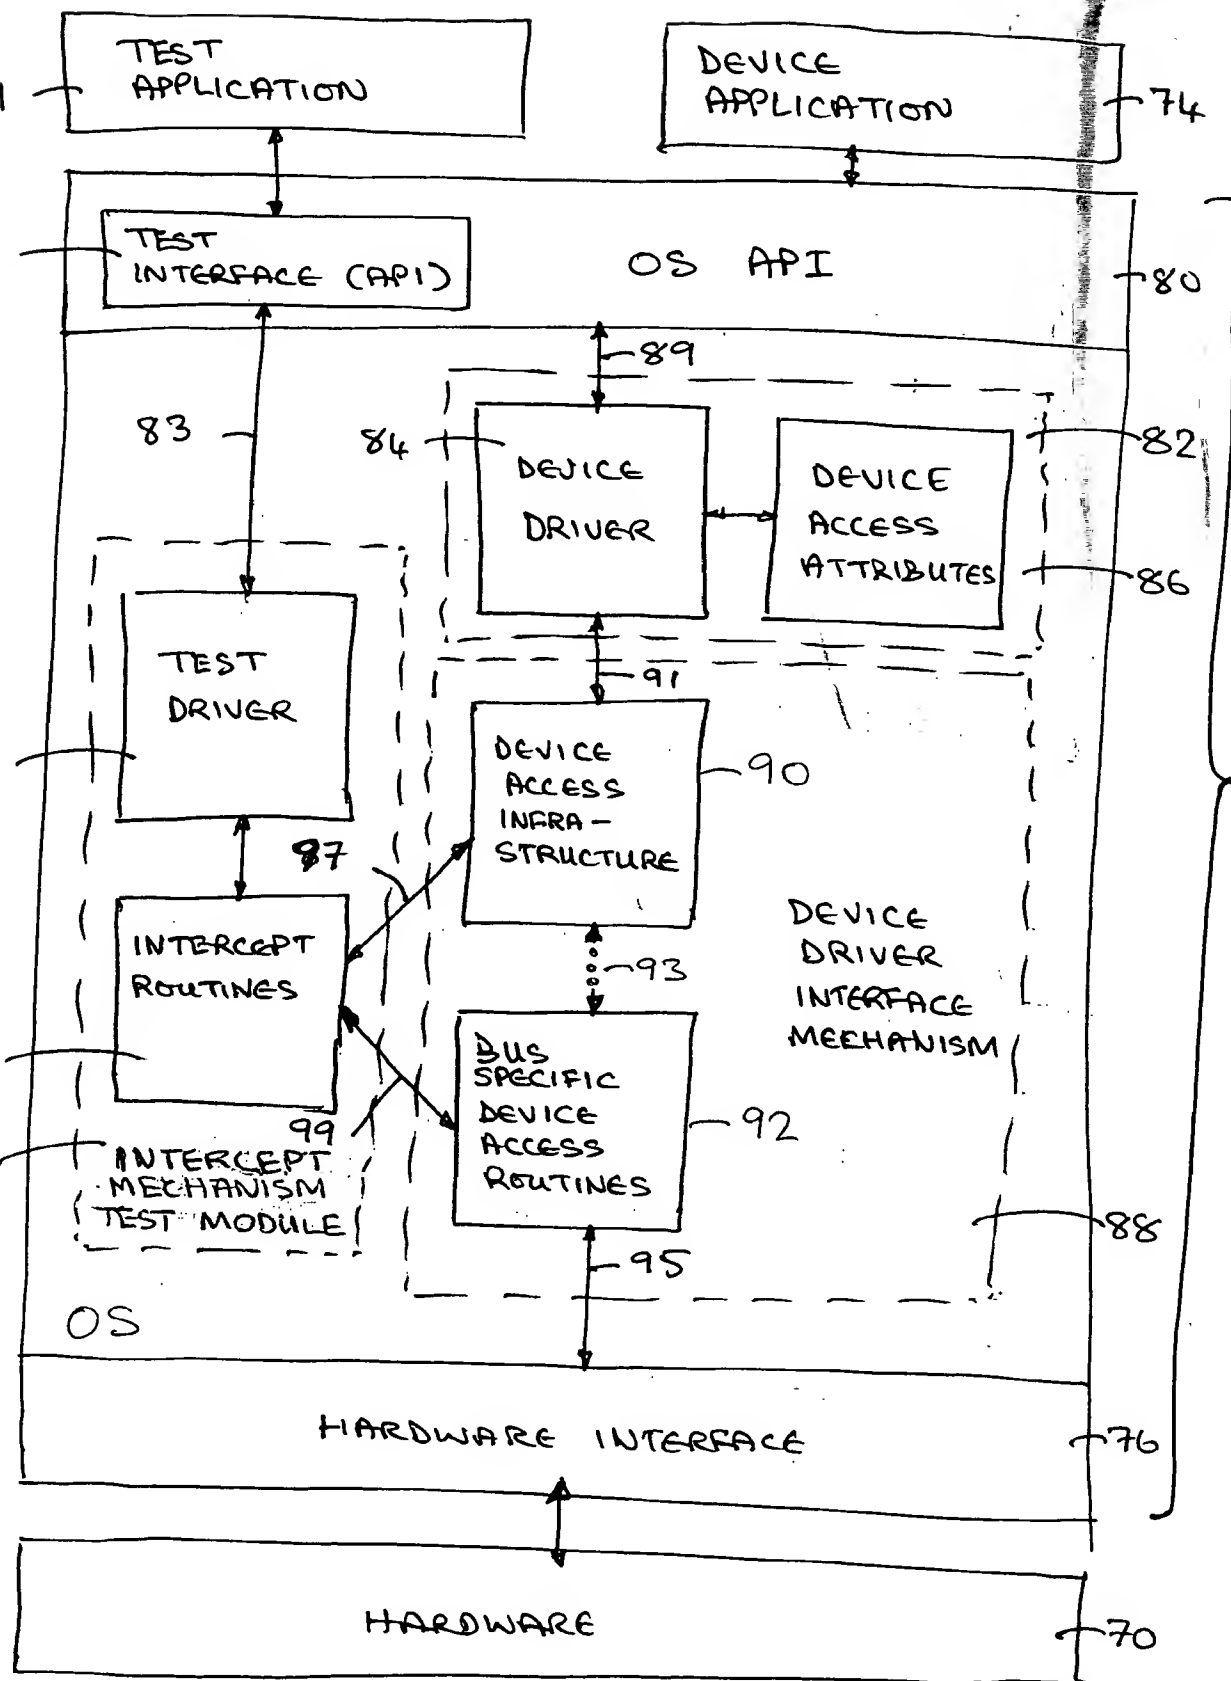 TEST
APPLICATION
DEVICE
APPLICATION
74
TEST
INTERFACE (API)
OS API
80
89
83
84
DEVICE
DRIVER
DEVICE
ACCESS
ATTRIBUTES
82
86
TEST
DRIVER
91
DEVICE
ACCESS
INFRA-
STRUCTURE
90
97
INTERCEPT
ROUTINES
93
DEVICE
DRIVER
INTERFACE
MECHANISM
BUS
SPECIFIC
DEVICE
ACCESS
ROUTINES
92
99
INTERCEPT
MECHANISM
TEST MODULE
88
95
OS
HARDWARE INTERFACE
76
HARDWARE
70